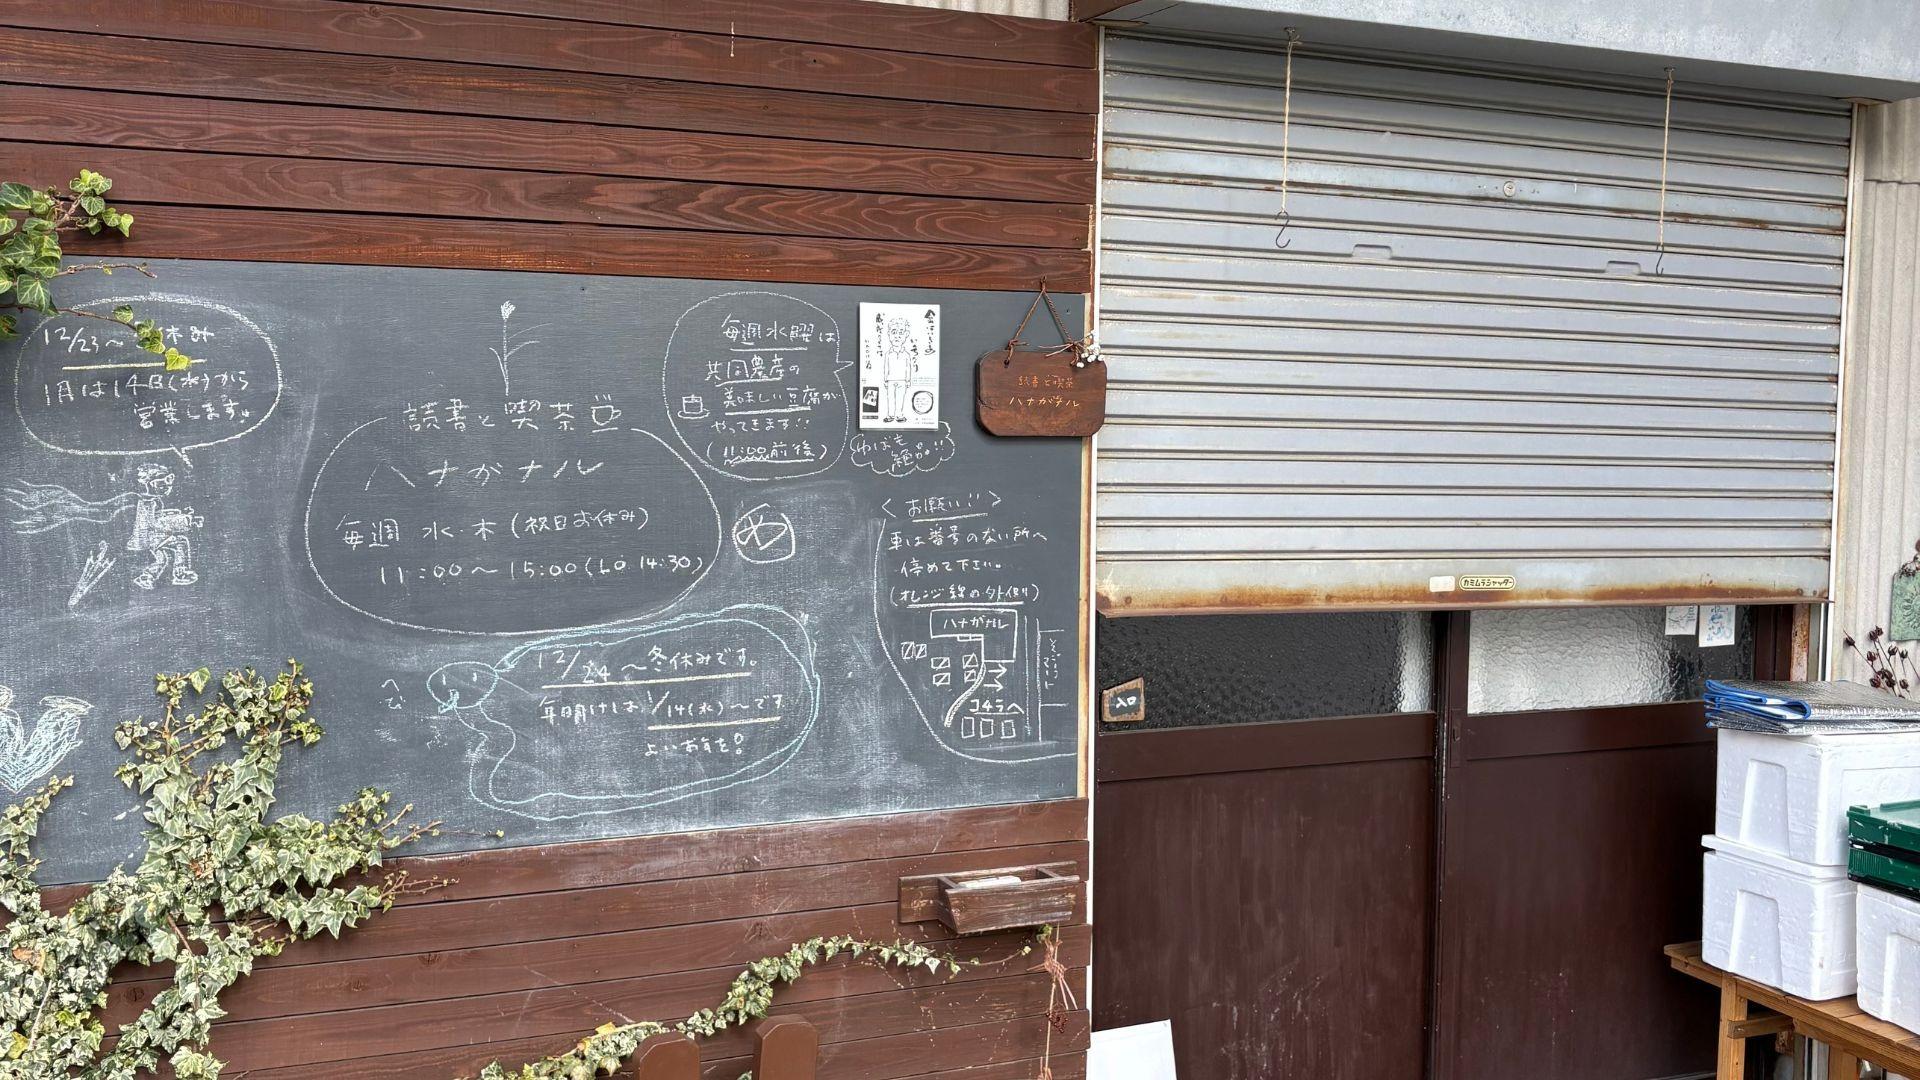 12/23〜 休み
1月は14日(水)から
営業します。
読書と喫茶
ハナがナル
毎週 水・木(祝日お休み)
11:00〜15:00(LO 14:30)
毎週水曜は
共同農産の
美味しい豆腐が
やってきます!!
(11:00前後)
ゆばも
絶品!!
読書と喫茶
ハナがナル
め
<お願い!!>
車は番号のない所へ
停めて下さい。
(オレンジ線の外側)
ハナがナル
コチラへ
へび
12/24〜冬休みです。
年明けは1/14(水)〜です
よいお年を。
カミムラシャッター
入口